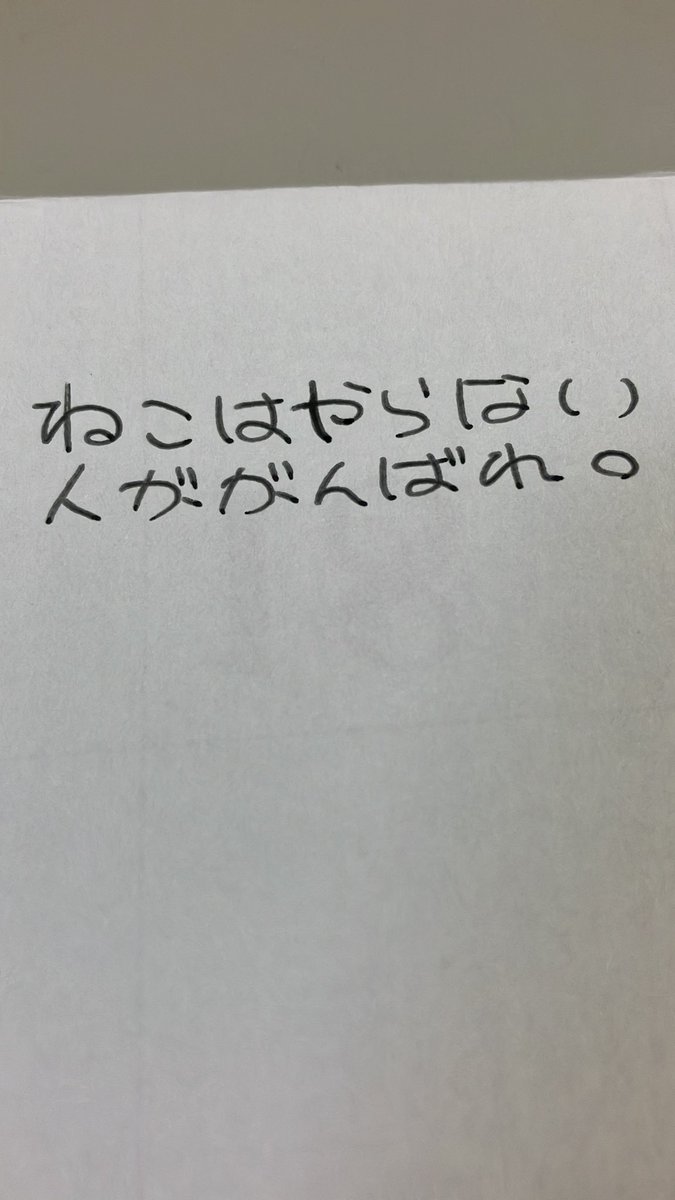 ねこはやらない
人ががんばれ。